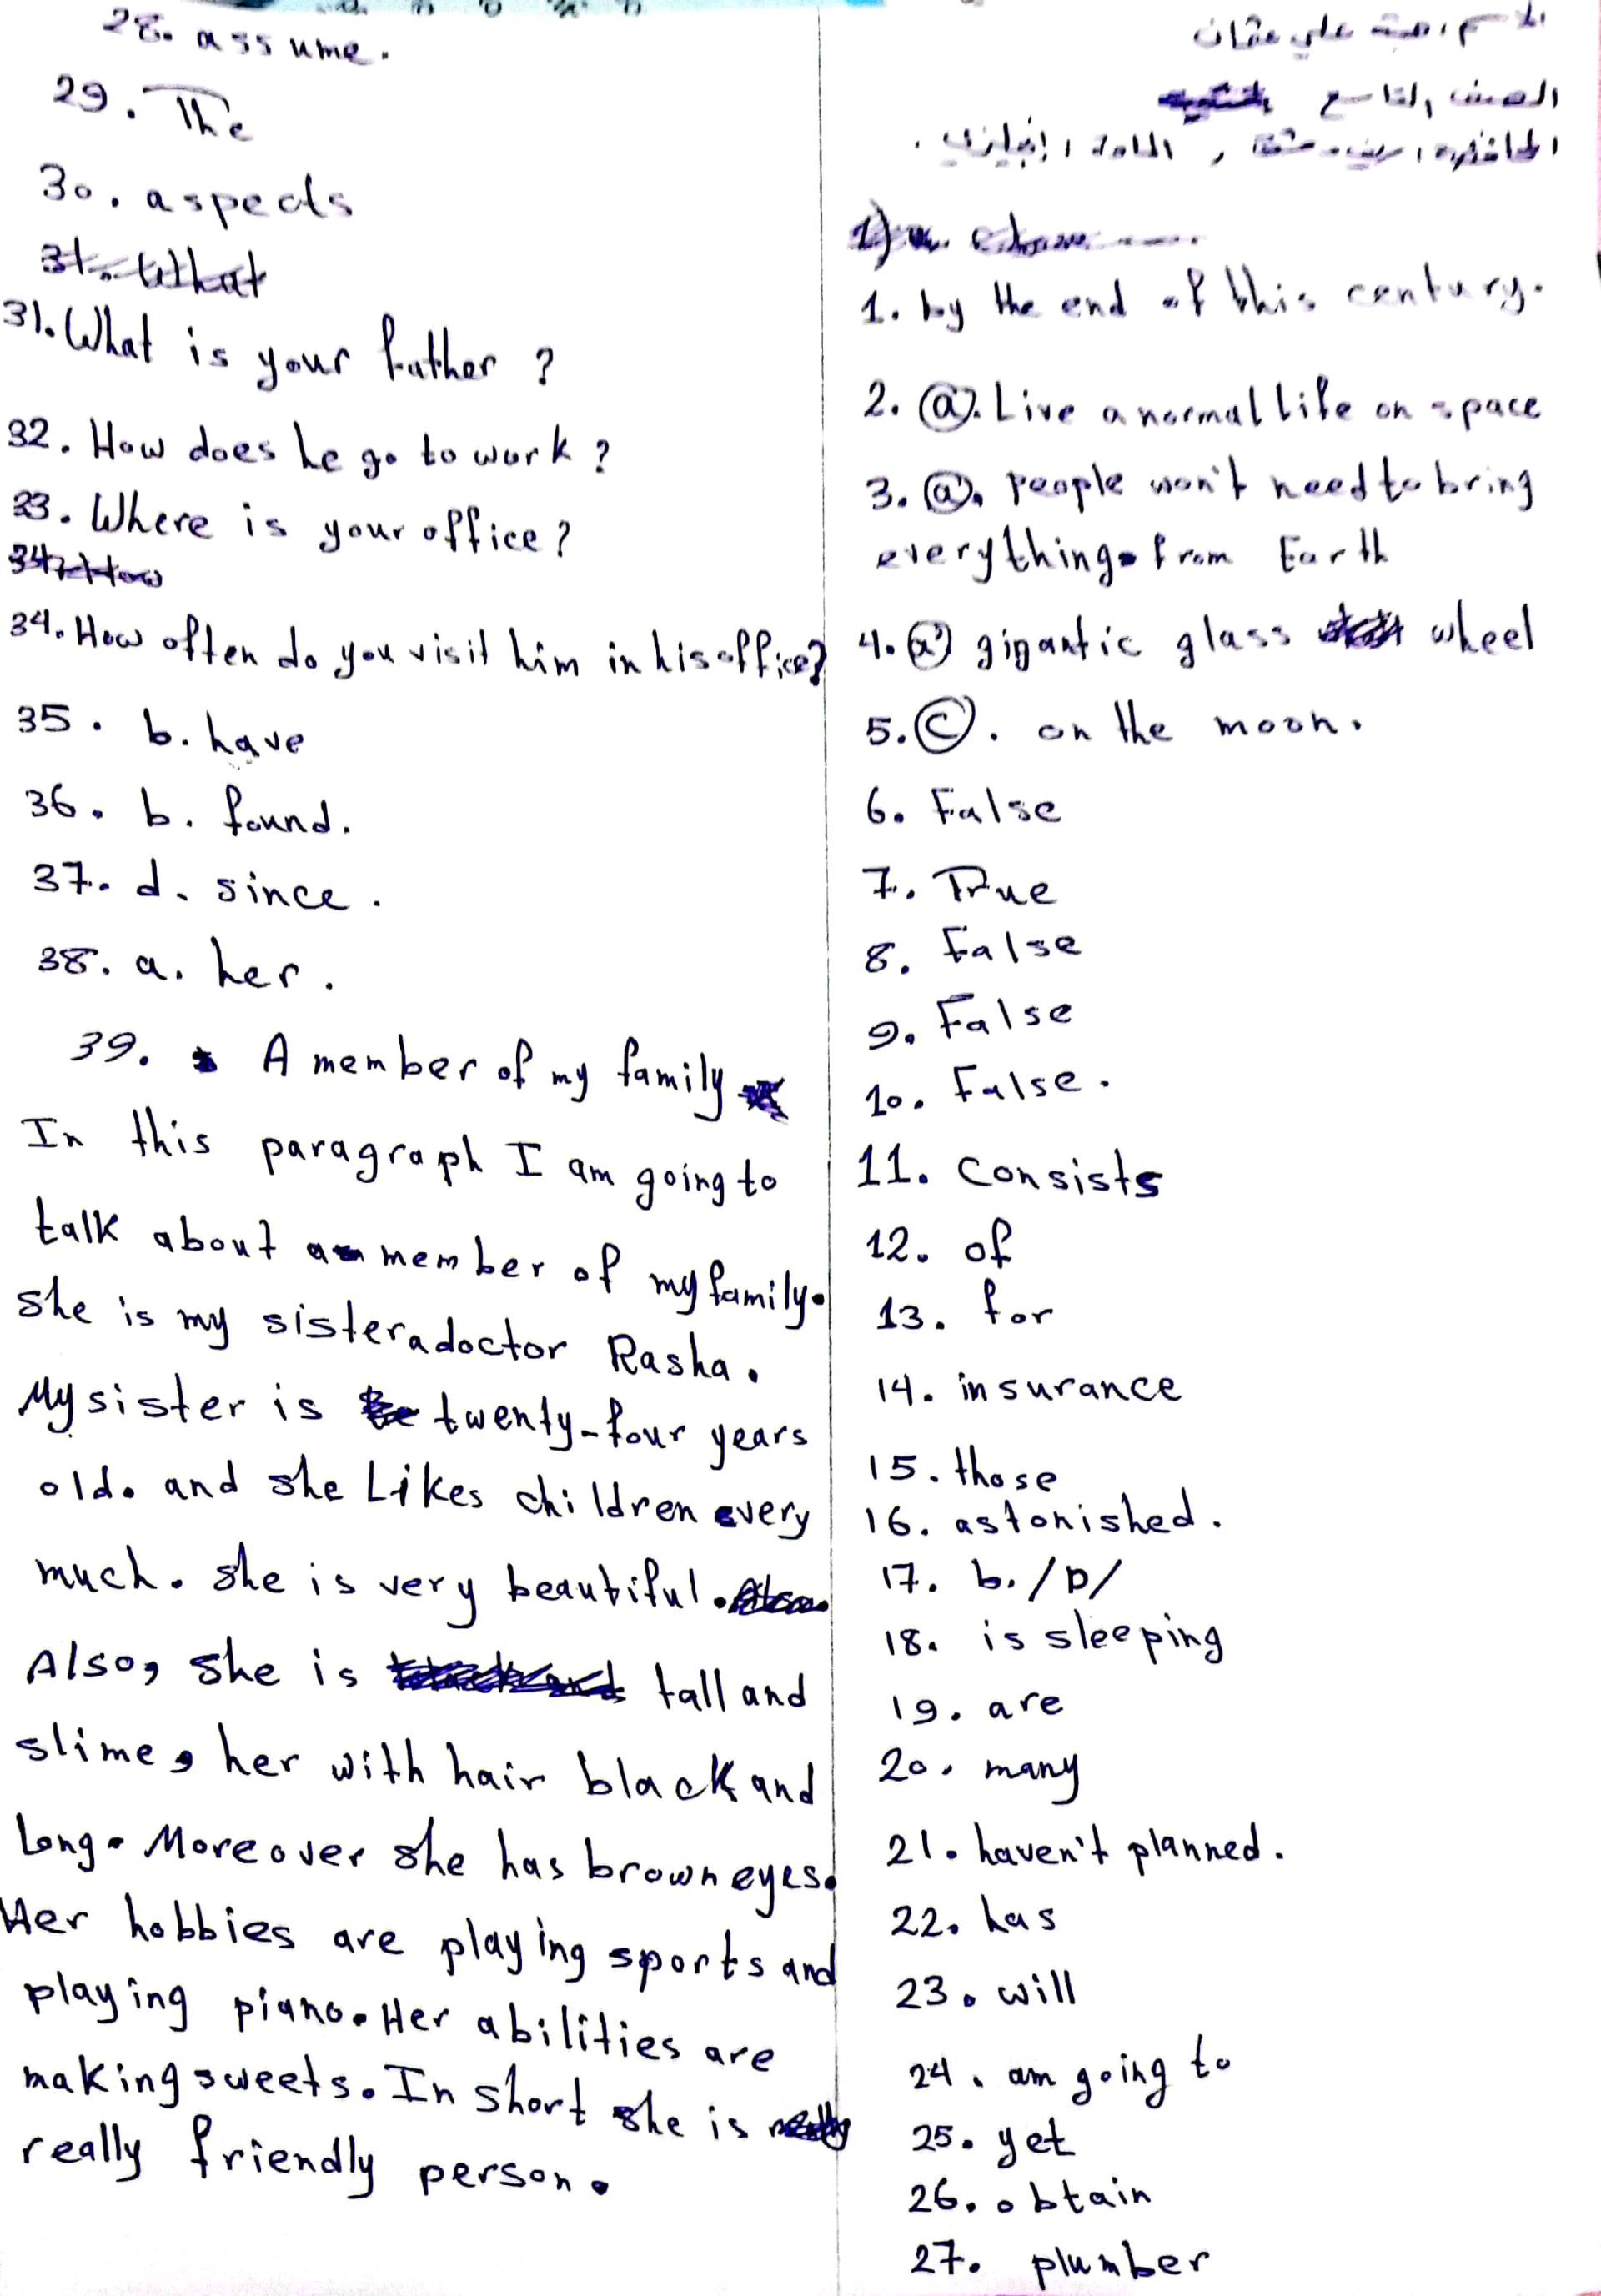 الاسم: هبة علي عثمان
الصف التاسع
المحافظة: ريف دمشق, المادة: إنجليزي.
1. by the end of this century.
2. a). Live a normal life on space
3. a). People won't need to bring
everything from Earth
4. a) gigantic glass wheel
5. C. on the moon.
6. False
7. True
8. False
9. False
10. False.
11. Consists
12. of
13. for
14. insurance
15. those
16. astonished.
17. b. /p/
18. is sleeping
19. are
20. many
21. haven't planned.
22. has
23. will
24. am going to
25. yet
26. obtain
27. plumber
28. assume.
29. The
30. aspects
31. What
31. What is your father ?
32. How does he go to work ?
33. Where is your office?
34. How
34. How often do you visit him in his office?
35. b. have
36. b. found.
37. d. since.
38. a. her.
39. A member of my family
In this paragraph I am going to
talk about a member of my family.
she is my sister a doctor Rasha.
My sister is twenty-four years
old. and she Likes children every
much. she is very beautiful.
Also, she is tall and
slime, her with hair black and
Long. Moreover she has brown eyes.
Her hobbies are playing sports and
playing piano. Her abilities are
making sweets. In short she is
really friendly person.